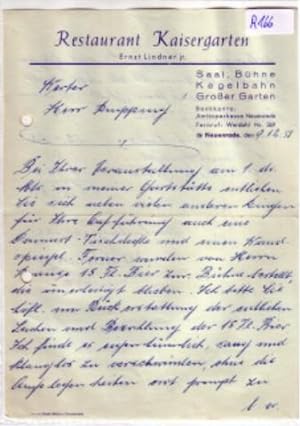 R166
Restaurant Kaisergarten
Ernst Lindner jr.
Saal, Bühne
Kegelbahn
Großer Garten
Bankkonto:
Amtssparkasse Neuenrade
Fernruf: Werdohl No.
Neuenrade, den 9.12.
Werter
Herr
Bei Ihrer Veranstaltung am 1. ds.
Mts. in meiner Gaststätte entliehen
Sie sich neben vielen anderen Dingen
für Ihre Aufführung auch eine
Damast-Tischdecke und einen Wand
spiegel. Ferner wurden von Herrn
15 Fl. Bier zur Bühne bestellt
die unerledigt blieben. Ich bitte Sie
höfl. um Rückerstattung der entliehen
Sachen und Bezahlung der 15 Fl. Bier
Ich finde es sang und
klanglos zu verschwinden, ohne die
Angelegenheiten erst prompt zu